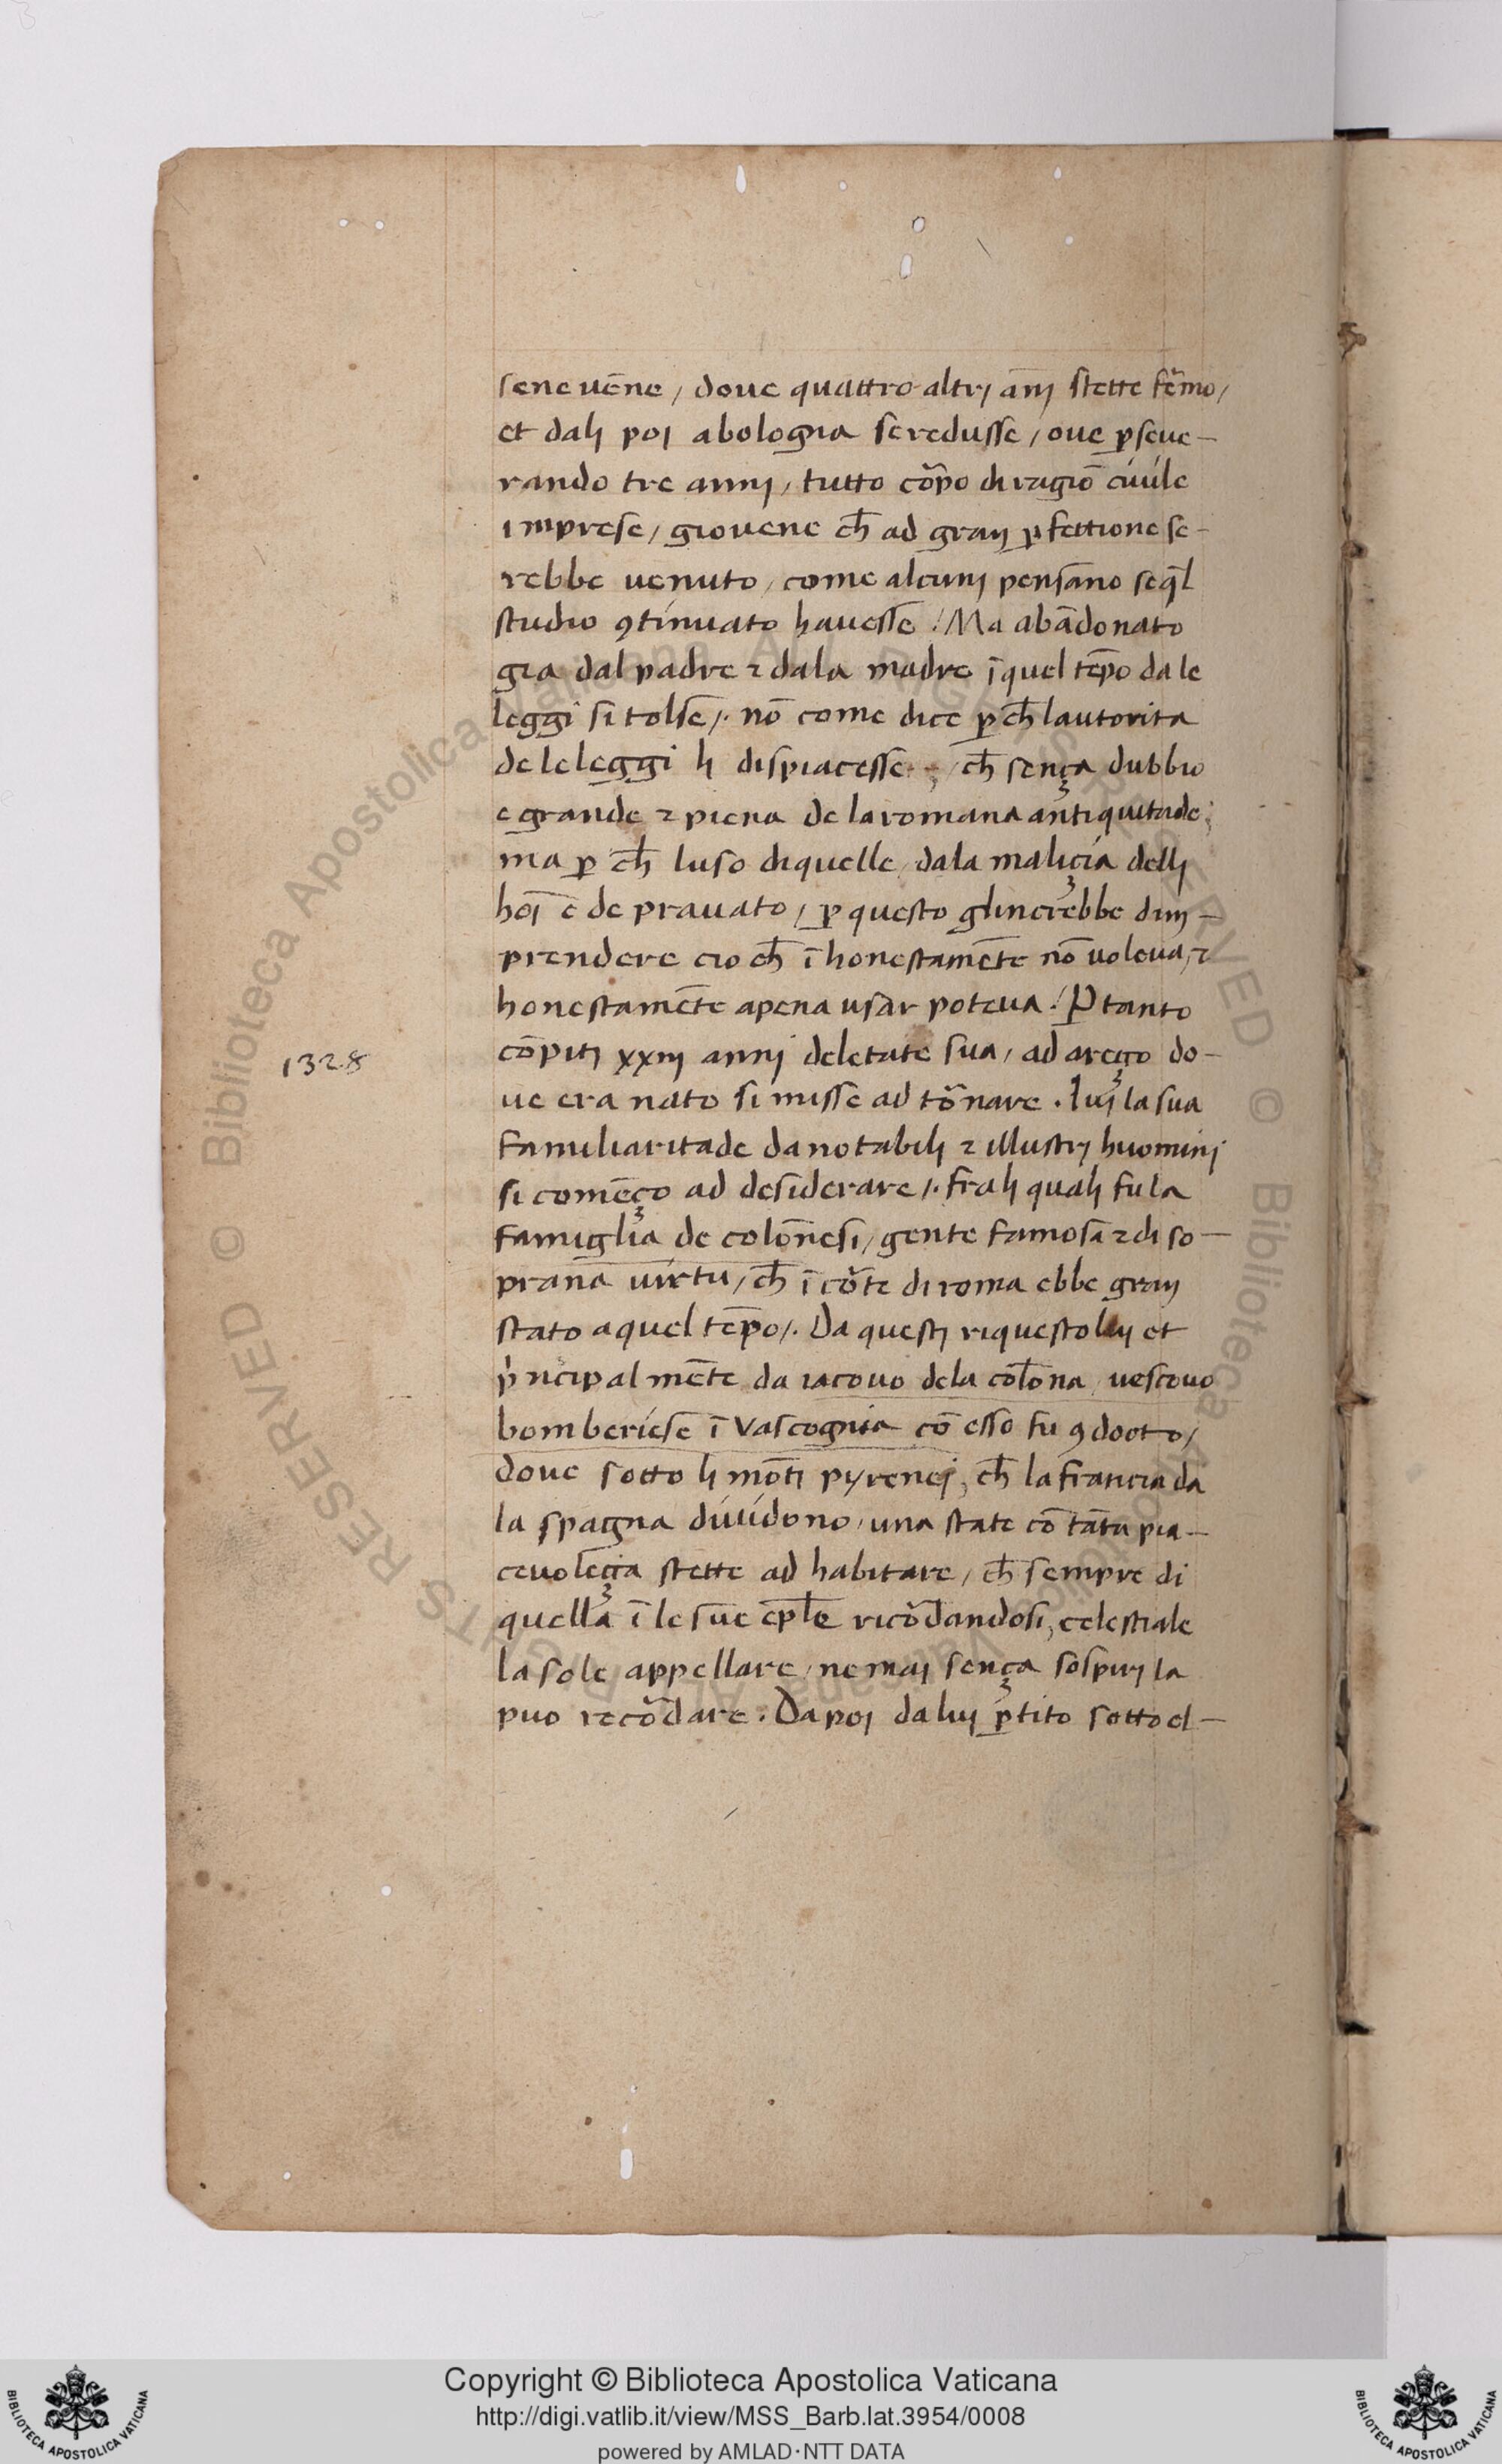 sene uēne / doue quattro altrj ān̄j stette fẽmo /
et dalj poi abologna seredusse / oue ꝑseue-
rando tre annj / tutto cõpo di ragiō ciuile
imprese / giouene ch̄ ad gran ꝑfettione se-
rebbe uenuto / come alcunj pensāno seq̄l
studio ꝯtinuato hauesse / Ma abādonato
gia dal padre ⁊ dala madre ī quel tēpo dale
leggi si tolse /. nō come dice ꝑch̄ lautorita
de le leggi li dispiacesse / ch̄ sença dubbio
e grande ⁊ piena de la romana antiquitade;
ma ꝑ ch̄ luso di quelle / dala maliçia dellj
hoī ē de prauato / ꝑ questo glincrebbe dim-
prendere cio ch̄ ī honestamēte nō uoleua, ⁊
honestamēte apena usar poteua / Ꝑ tanto
cōpiti xxiij annj deletate sua / ad areço do-
1328
ue era nato si misse ad tõnare . Iui la sua
familiaritade da notabilj ⁊ illustrj huominj
si comēço ad desiderare /. fralj qualj fu la
famiglia de colōnesi / gente famosa ⁊ di so-
prana uirtu / ch̄ ī cõte di roma ebbe gran
stato a quel tēpo /. Da questj riquesto luj et
pͥncipalmēte da iacouo dela colōna / uescouo
bomberiese ī Vascogna cō esso fu ꝯdocto /
doue sotto li mōti pyrenej, ch̄ la francia da
la spagna diuidono / una state cō tāta pia-
ceuoleça stette ad habitare / ch̄ sempre di
quella ī le sue ep̄le ricõdandosi, celestiale
la sole appellare / ne mai sença sospirj la
puo recõdare . Da poi da luj ꝑtito sotto el-
Copyright © Biblioteca Apostolica Vaticana
http://digi.vatlib.it/view/MSS_Barb.lat.3954/0008
powered by AMLAD·NTT DATA
BIBLIOTECA APOSTOLICA VATICANA
BIBLIOTECA APOSTOLICA VATICANA